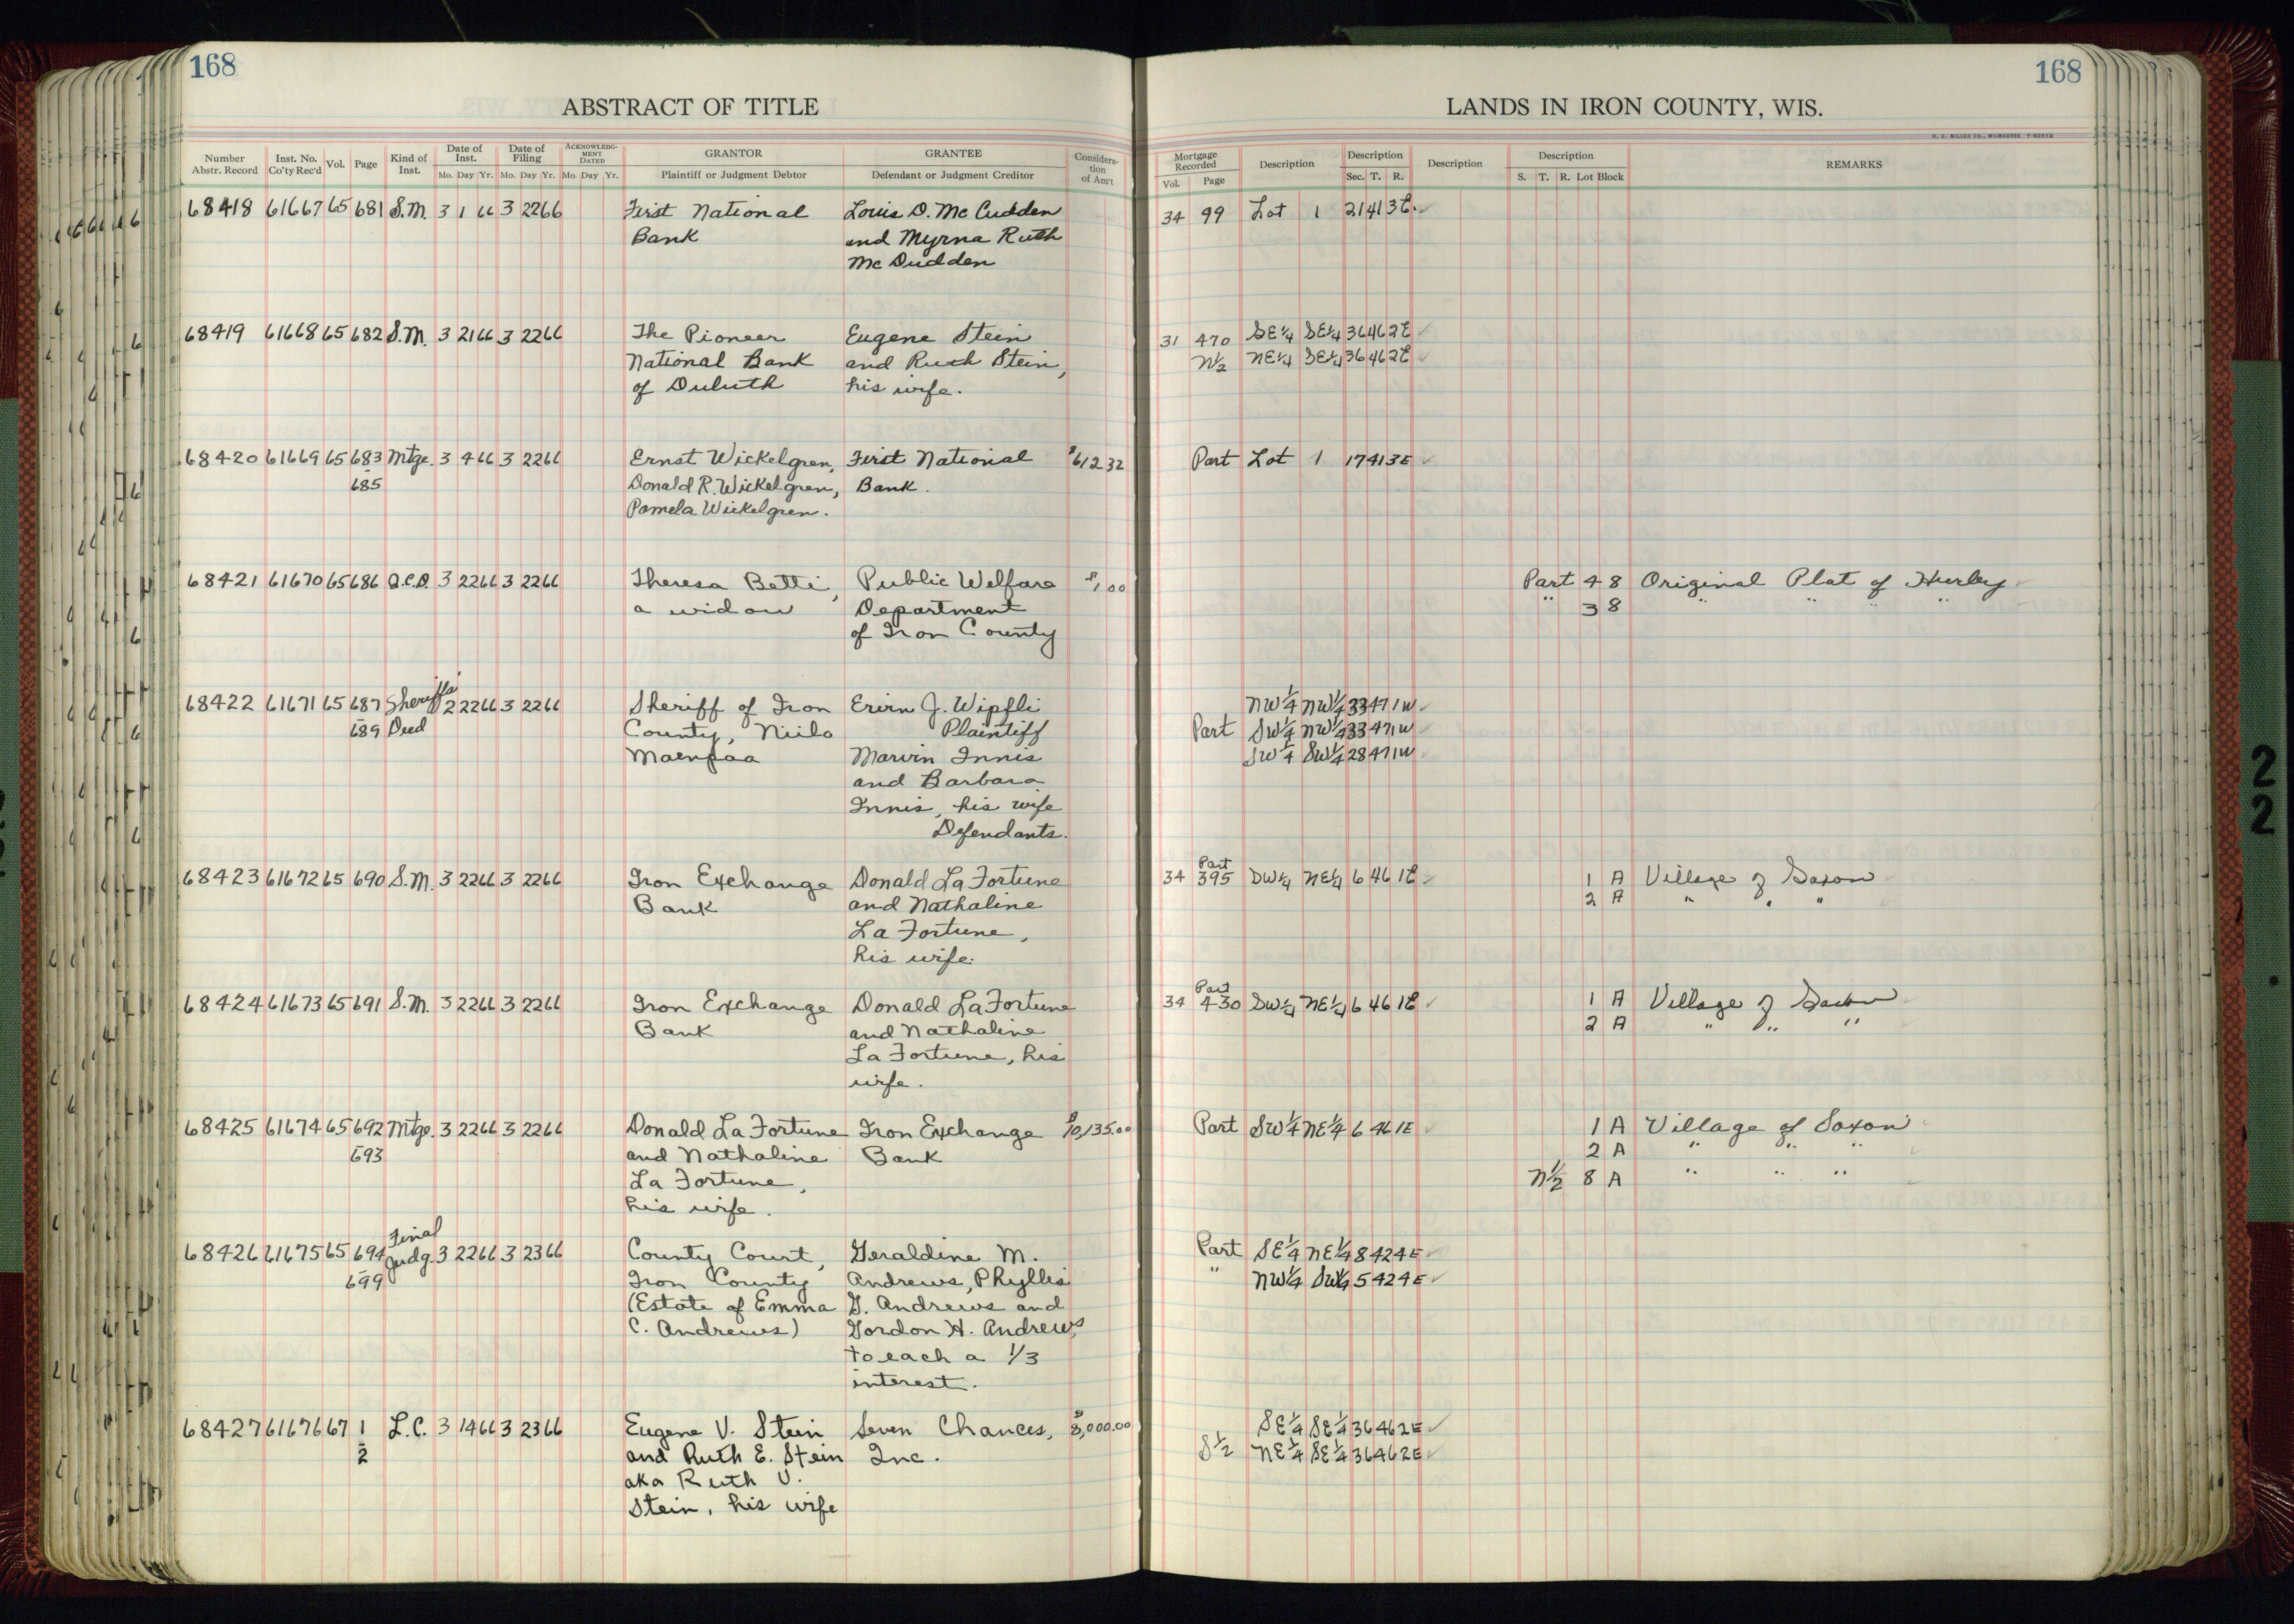 168
168
ABSTRACT OF TITLE
LANDS IN IRON COUNTY, WIS.
H. C. MILLER CO., MILWAUKEE
Number Abstr. Record Inst. No. Co'ty Rec'd Vol. Page Kind of Inst. Date of Inst. Mo. Day Yr. Date of Filing Mo. Day Yr. ACKNOWLEDGMENT DATED Mo. Day Yr. GRANTOR Plaintiff or Judgment Debtor GRANTEE Defendant or Judgment Creditor Consideration of Am't
Mortgage Recorded Vol. Page Description Description Sec. T. R. Description Description S. T. R. Lot Block REMARKS
68418 61667 65 681 S.M. 3 1 66 3 22 66 First National Louis D. Mc Cudden 34 99 Lot 1 21 41 3E.
Bank and Myrna Ruth
Mc Dudden
68419 61668 65 682 S.M. 3 21 66 3 22 66 The Pioneer Eugene Stein 31 470 SE1/4 SE1/4 36 46 2E
National Bank and Ruth Stein, N1/2 NE1/4 SE1/4 36 46 2E
of Duluth his wife.
68420 61669 65 683 Mtge. 3 4 66 3 22 66 Ernst Wickelgren, First National $612 32 Part Lot 1 17 41 3E
685 Donald R. Wickelgren, Bank.
Pamela Wickelgren.
68421 61670 65 686 Q.C.D. 3 22 66 3 22 66 Theresa Betti, Public Welfare $1.00 Part 4 8 Original Plat of Hurley
a widow Department " 3 8 " " " "
of Iron County
68422 61671 65 687 Sheriff's 2 22 66 3 22 66 Sheriff of Iron Ervin J. Wipfli NW1/4 NW1/4 33 47 1W
689 Deed County, Niilo Plaintiff Part SW1/4 NW1/4 33 47 1W
Maenpaa Marvin Innis SW1/4 SW1/4 28 47 1W
and Barbara
Innis, his wife
Defendants.
68423 61672 65 690 S.M. 3 22 66 3 22 66 Iron Exchange Donald La Fortune 34 Part 395 SW1/4 NE1/4 6 46 1E 1 A Village of Saxon
Bank and Nathaline 2 A " " "
La Fortune,
his wife.
68424 61673 65 691 S.M. 3 22 66 3 22 66 Iron Exchange Donald La Fortune 34 Part 430 SW1/4 NE1/4 6 46 1E 1 A Village of Saxon
Bank and Nathaline 2 A " " "
La Fortune, his
wife.
68425 61674 65 692 Mtge. 3 22 66 3 22 66 Donald La Fortune Iron Exchange $10,135.00 Part SW1/4 NE1/4 6 46 1E 1 A Village of Saxon
693 and Nathaline Bank 2 A " " "
La Fortune, N1/2 8 A " " "
his wife.
68426 61675 65 694 Final Judg. 3 22 66 3 23 66 County Court, Geraldine M. Part SE1/4 NE1/4 8 42 4E
699 Iron County Andrews, Phyllis " NW1/4 SW1/4 5 42 4E
(Estate of Emma G. Andrews and
C. Andrews) Gordon H. Andrews,
to each a 1/3
interest.
68427 61676 67 1 L.C. 3 14 66 3 23 66 Eugene V. Stein Seven Chances, $8,000.00 SE1/4 SE1/4 36 46 2E
2 and Ruth E. Stein Inc. S1/2 NE1/4 SE1/4 36 46 2E
aka Ruth V.
Stein, his wife
22